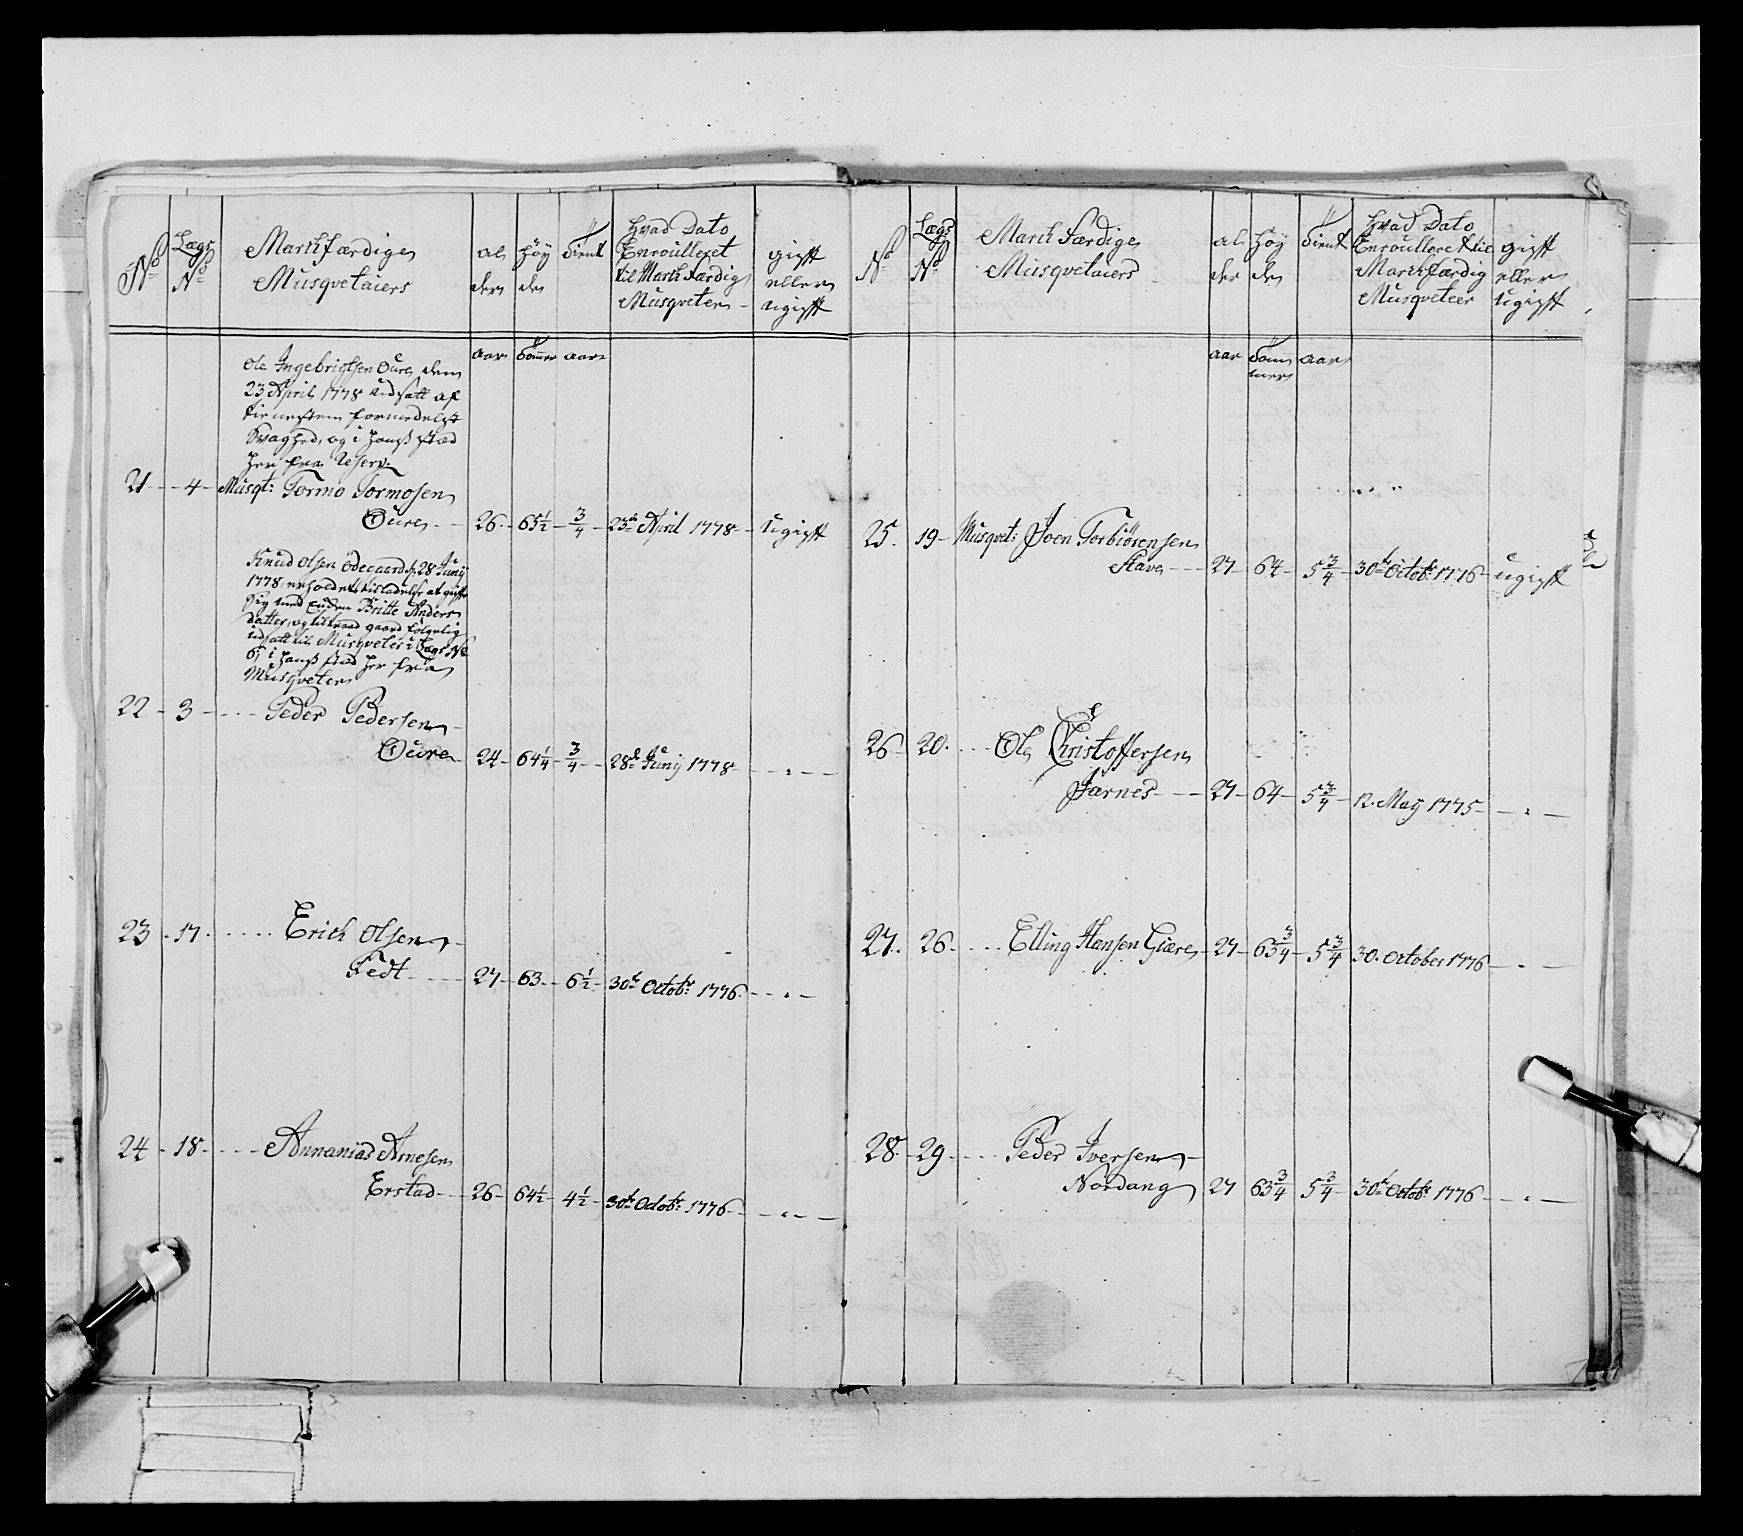 No
Lægs No
Marchfærdige Musqvetaiers
al der
høy de
tient
Hvad Dato Enroulleret til Marchfærdig Musqveteer
gift eller ugift
aar Tommer aar
Ole Ingebrigtsen Oure, dem
23 April 1778 udsatt af
tienesten formedelst
Svaghed, og i hans stæd
her fra Reserv.
21 - 4 - Musqt: Tormo Tormosen
Oure - 26 - 65½ - ¾ - 23de April 1778 - Ugift
Knud Olsen Ödegaard, 28 Junij
1778, erholdet tilladelse at gifte
sig med Enken Britte Anders
datter, og tiltraad gaard følgelig
udsatt til Musqveter i Lægs No
6, i hans stæd her fra
Musqveter
22 - 3 - Peder Pedersen
Oure - 24 - 64¼ - ¾ - 28de Junij 1778 - " -
23 - 17 - Erich Olsen
Tedt - 27 - 63 - 6½ - 30te Octobr: 1776 - " -
24 - 18 - Annanias Arnesen
Erstad - 26 - 64½ - 4½ - 30te Octobr: 1776 - " -
No
Lægs No
March Færdige Musqvetaiers
al der
høy de
tient
Hvad Dato Enroulleret til Marchfærdig Musqveteer
gift eller ugift
aar Tommer aar
25. 19 - Musqvet: Joen Torbiörensen
Stave - 27 - 64 - 5¾ - 30te Octobr: 1776 - ugift
26 - 20 - Ole Christoffersen
Jarnes - 27 - 64 - 5¾ - 12. May 1775 - " -
27. 26 - Elling Hansen Giære - 27 - 63¾ - 5¾ - 30. October 1776 - " -
28 - 29 - Peder Iversen
Nordang 27 63¾ 5¾ - 30te Octobr: 1776 - " -